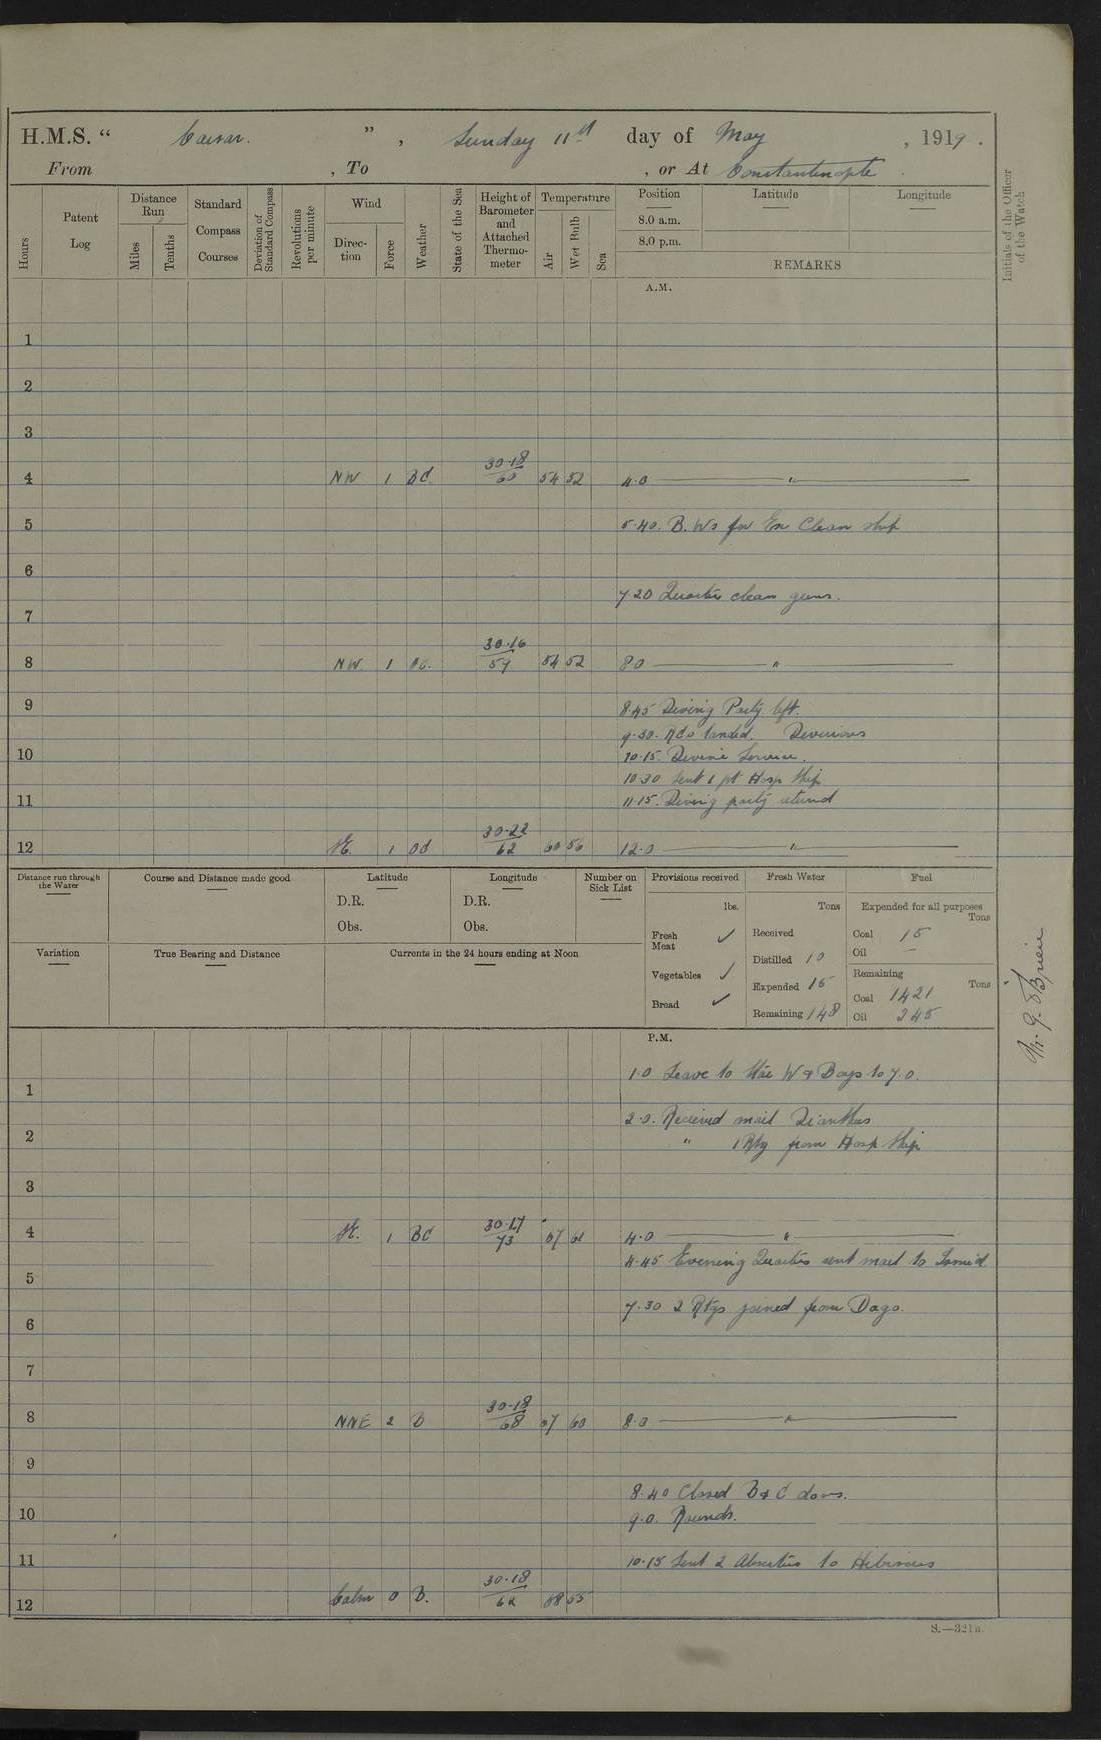 H.M.S. “ Caesar. ” , Sunday 11th day of May , 1919 .
From , To , or At Constantinople .
Hours
Patent Log
Distance Run
Miles
Tenths
Standard Compass Courses
Deviation of Standard Compass
Revolutions per minute
Wind
Direc-tion
Force
Weather
State of the Sea
Height of Barometer and Attached Thermo-meter
Temperature
Air
Wet Bulb
Sea
Position
8.0 a.m.
8.0 p.m.
Latitude
Longitude
REMARKS
Initials of the Officer of the Watch
A.M.
1
2
3
4 NW 1 BC 30·18 60 54 52 4·0 "
5 5·40. B. Ws for Ex Clean ship
6
7·20 Quarters clean guns.
7
8 NW. 1 30·16 59 54 52 8 0 "
9 8·45 Diving Party left.
9·30. RCs landed. Divisions
10 10·15. Devine Service.
10 30 Sent 1 pt Hosp Ship
11 11·15. Diving party returnd
12 1 30·22 62 60 56 12·0 "
Distance run through the Water
Course and Distance made good
Latitude
D.R.
Obs.
Longitude
D.R.
Obs.
Number on Sick List
Provisions received
lbs.
Fresh Meat ✓
Vegetables ✓
Bread ✓
Fresh Water
Tons
Received
Distilled 10
Expended 15
Remaining 148
Fuel
Expended for all purposes
Tons
Coal 15
Oil –
Remaining
Tons
Coal 1421
Oil 245
Variation
True Bearing and Distance
Currents in the 24 hours ending at Noon
P.M.
1·0 Leave to W & Boys to 7.0.
1
2·0. Recieved mail Dianthus
2 " 1 Rtg from Hosp Ship
3
4 1 BC 30·17 73 67 61 4·0 "
4·45 Evening Quarters sent mail to Ismid
5
7·30 2 Rtgs joined from Dago.
6
7
8 NNE 2 B 30·18 68 67 60 8·0 "
9
8·40 Closed B & C doors.
10 9.0. Rounds.
11 10·15 Sent 2 Absentees to Hibiscus
12 Calm 0 B. 30·18 62 58 55
S.—321a.